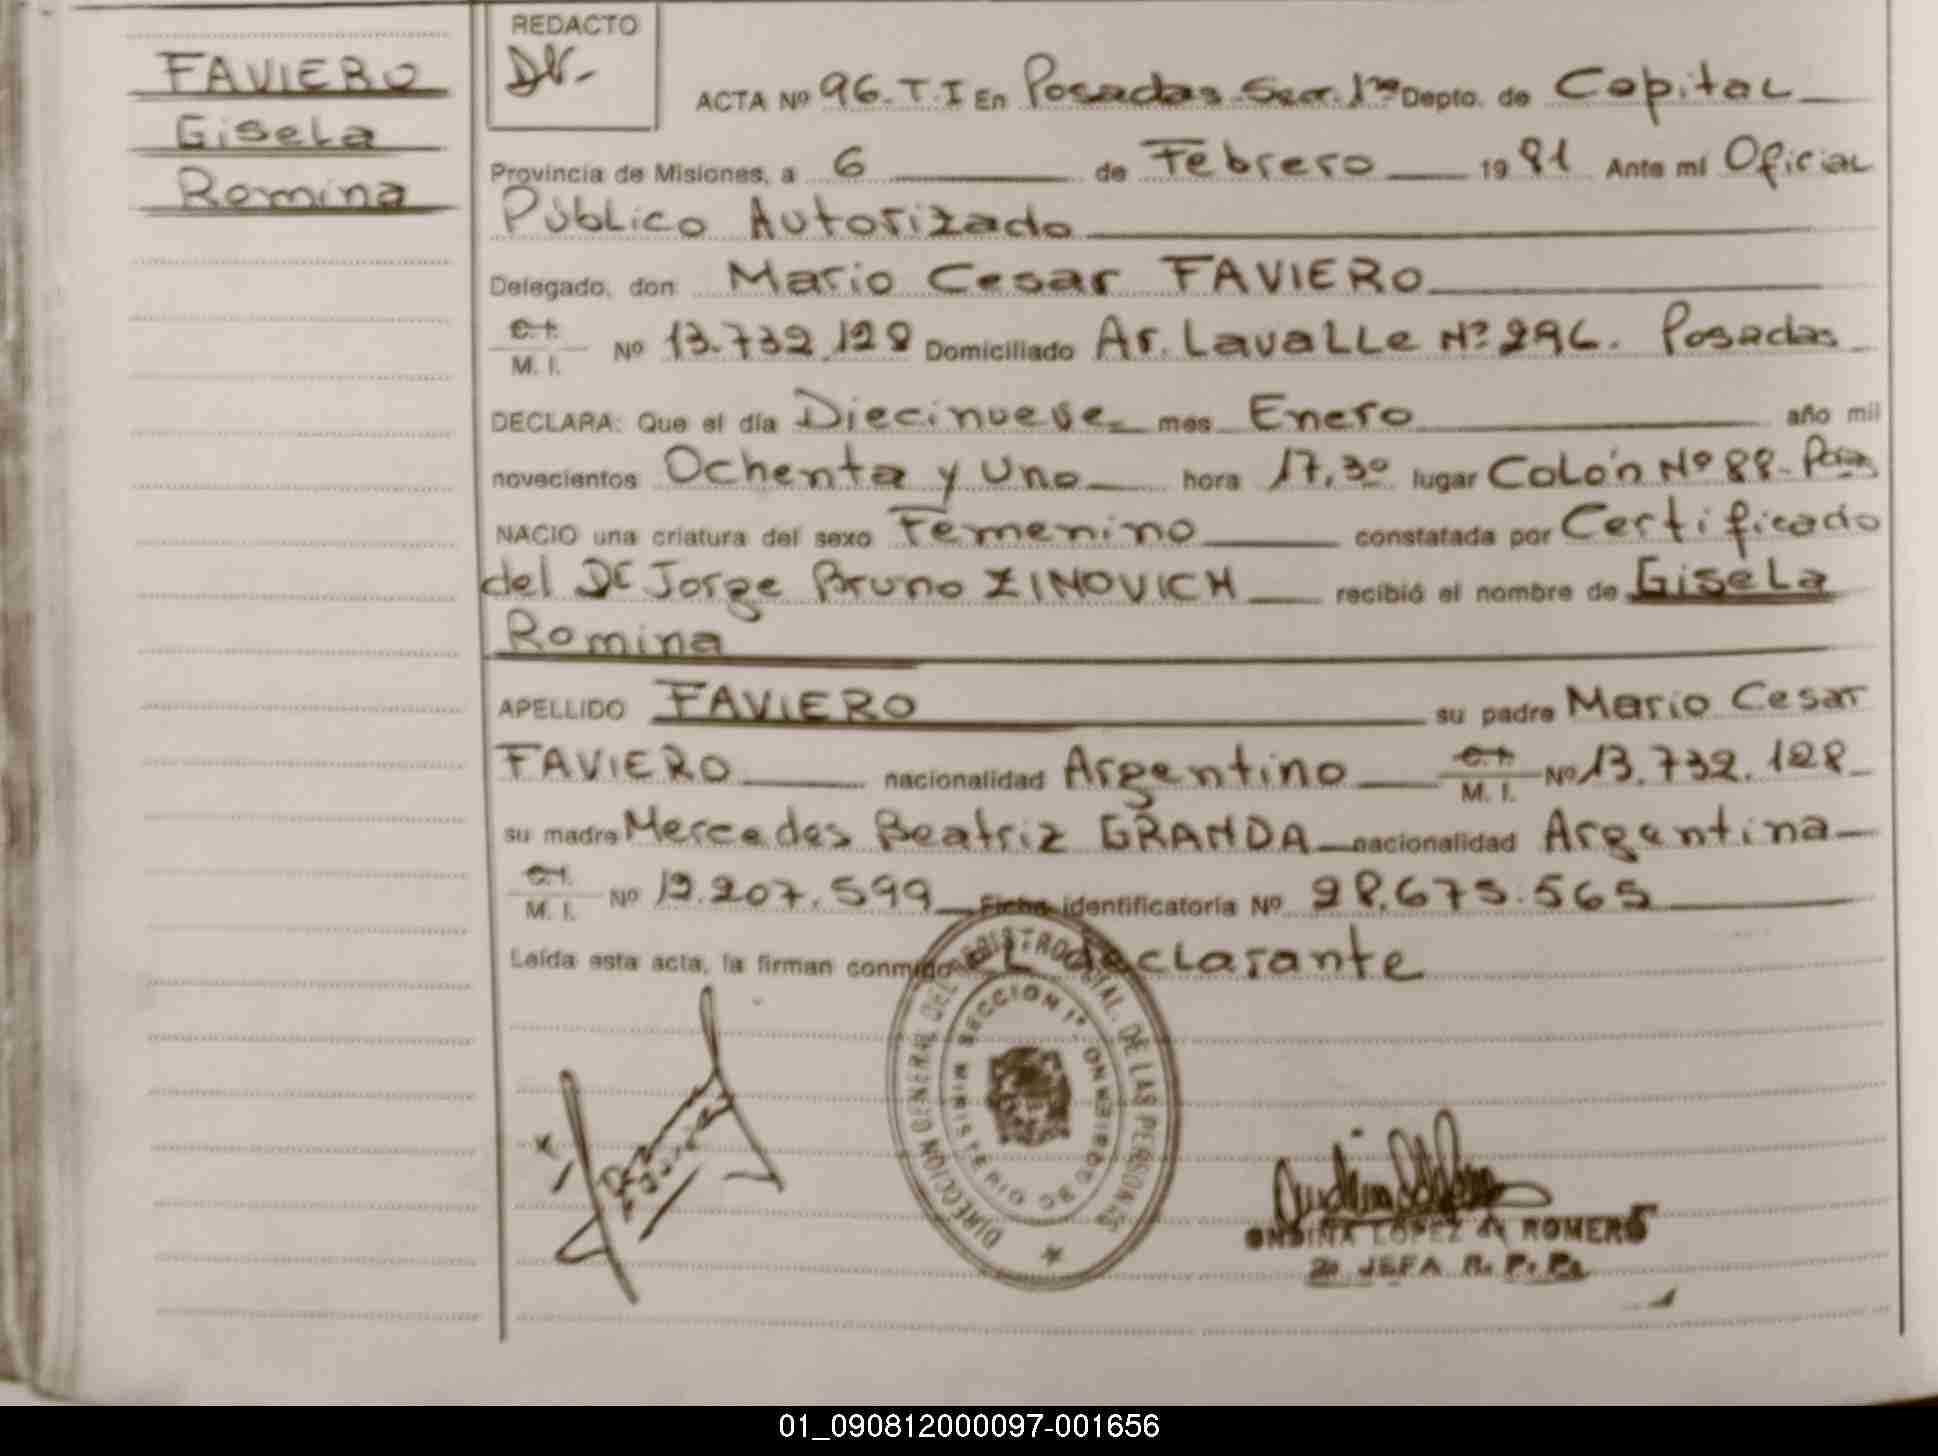 FAVIERO
Gisela
Romina
REDACTO
ACTA Nº 96. T. I En Posadas Secc. 1ra Depto. de Capital
Provincia de Misiones, a 6 de Febrero 1981 Ante mí Oficial
Público Autorizado
Delegado, don Mario Cesar FAVIERO
C.I.
M. I. Nº 13.732.128 Domiciliado Av. Lavalle Nº 296. Posadas
DECLARA: Que el día Diecinueve mes Enero año mil
novecientos Ochenta y Uno hora 17,30 lugar Colón Nº 88-
NACIO una criatura del sexo Femenino constatada por Certificado
del Dr Jorge Bruno ZINOVICH recibió el nombre de Gisela
Romina
APELLIDO FAVIERO su padre Mario Cesar
FAVIERO nacionalidad Argentino C.I.
M. I. Nº 13.732.128
su madre Mercedes Beatriz GRANDA nacionalidad Argentina
C.I.
M. I. Nº 12.207.599 Ficha identificatoria Nº 28.675.565
Leída esta acta, la firman conmigo el declarante
DIRECCION GENERAL DEL REGISTRO PCIAL. DE LAS PERSONAS
SECCION 1ª
MINISTERIO DE GOBIERNO
ONDINA LOPEZ de ROMERO
2a JEFA R. P. P.
01_090812000097-001656